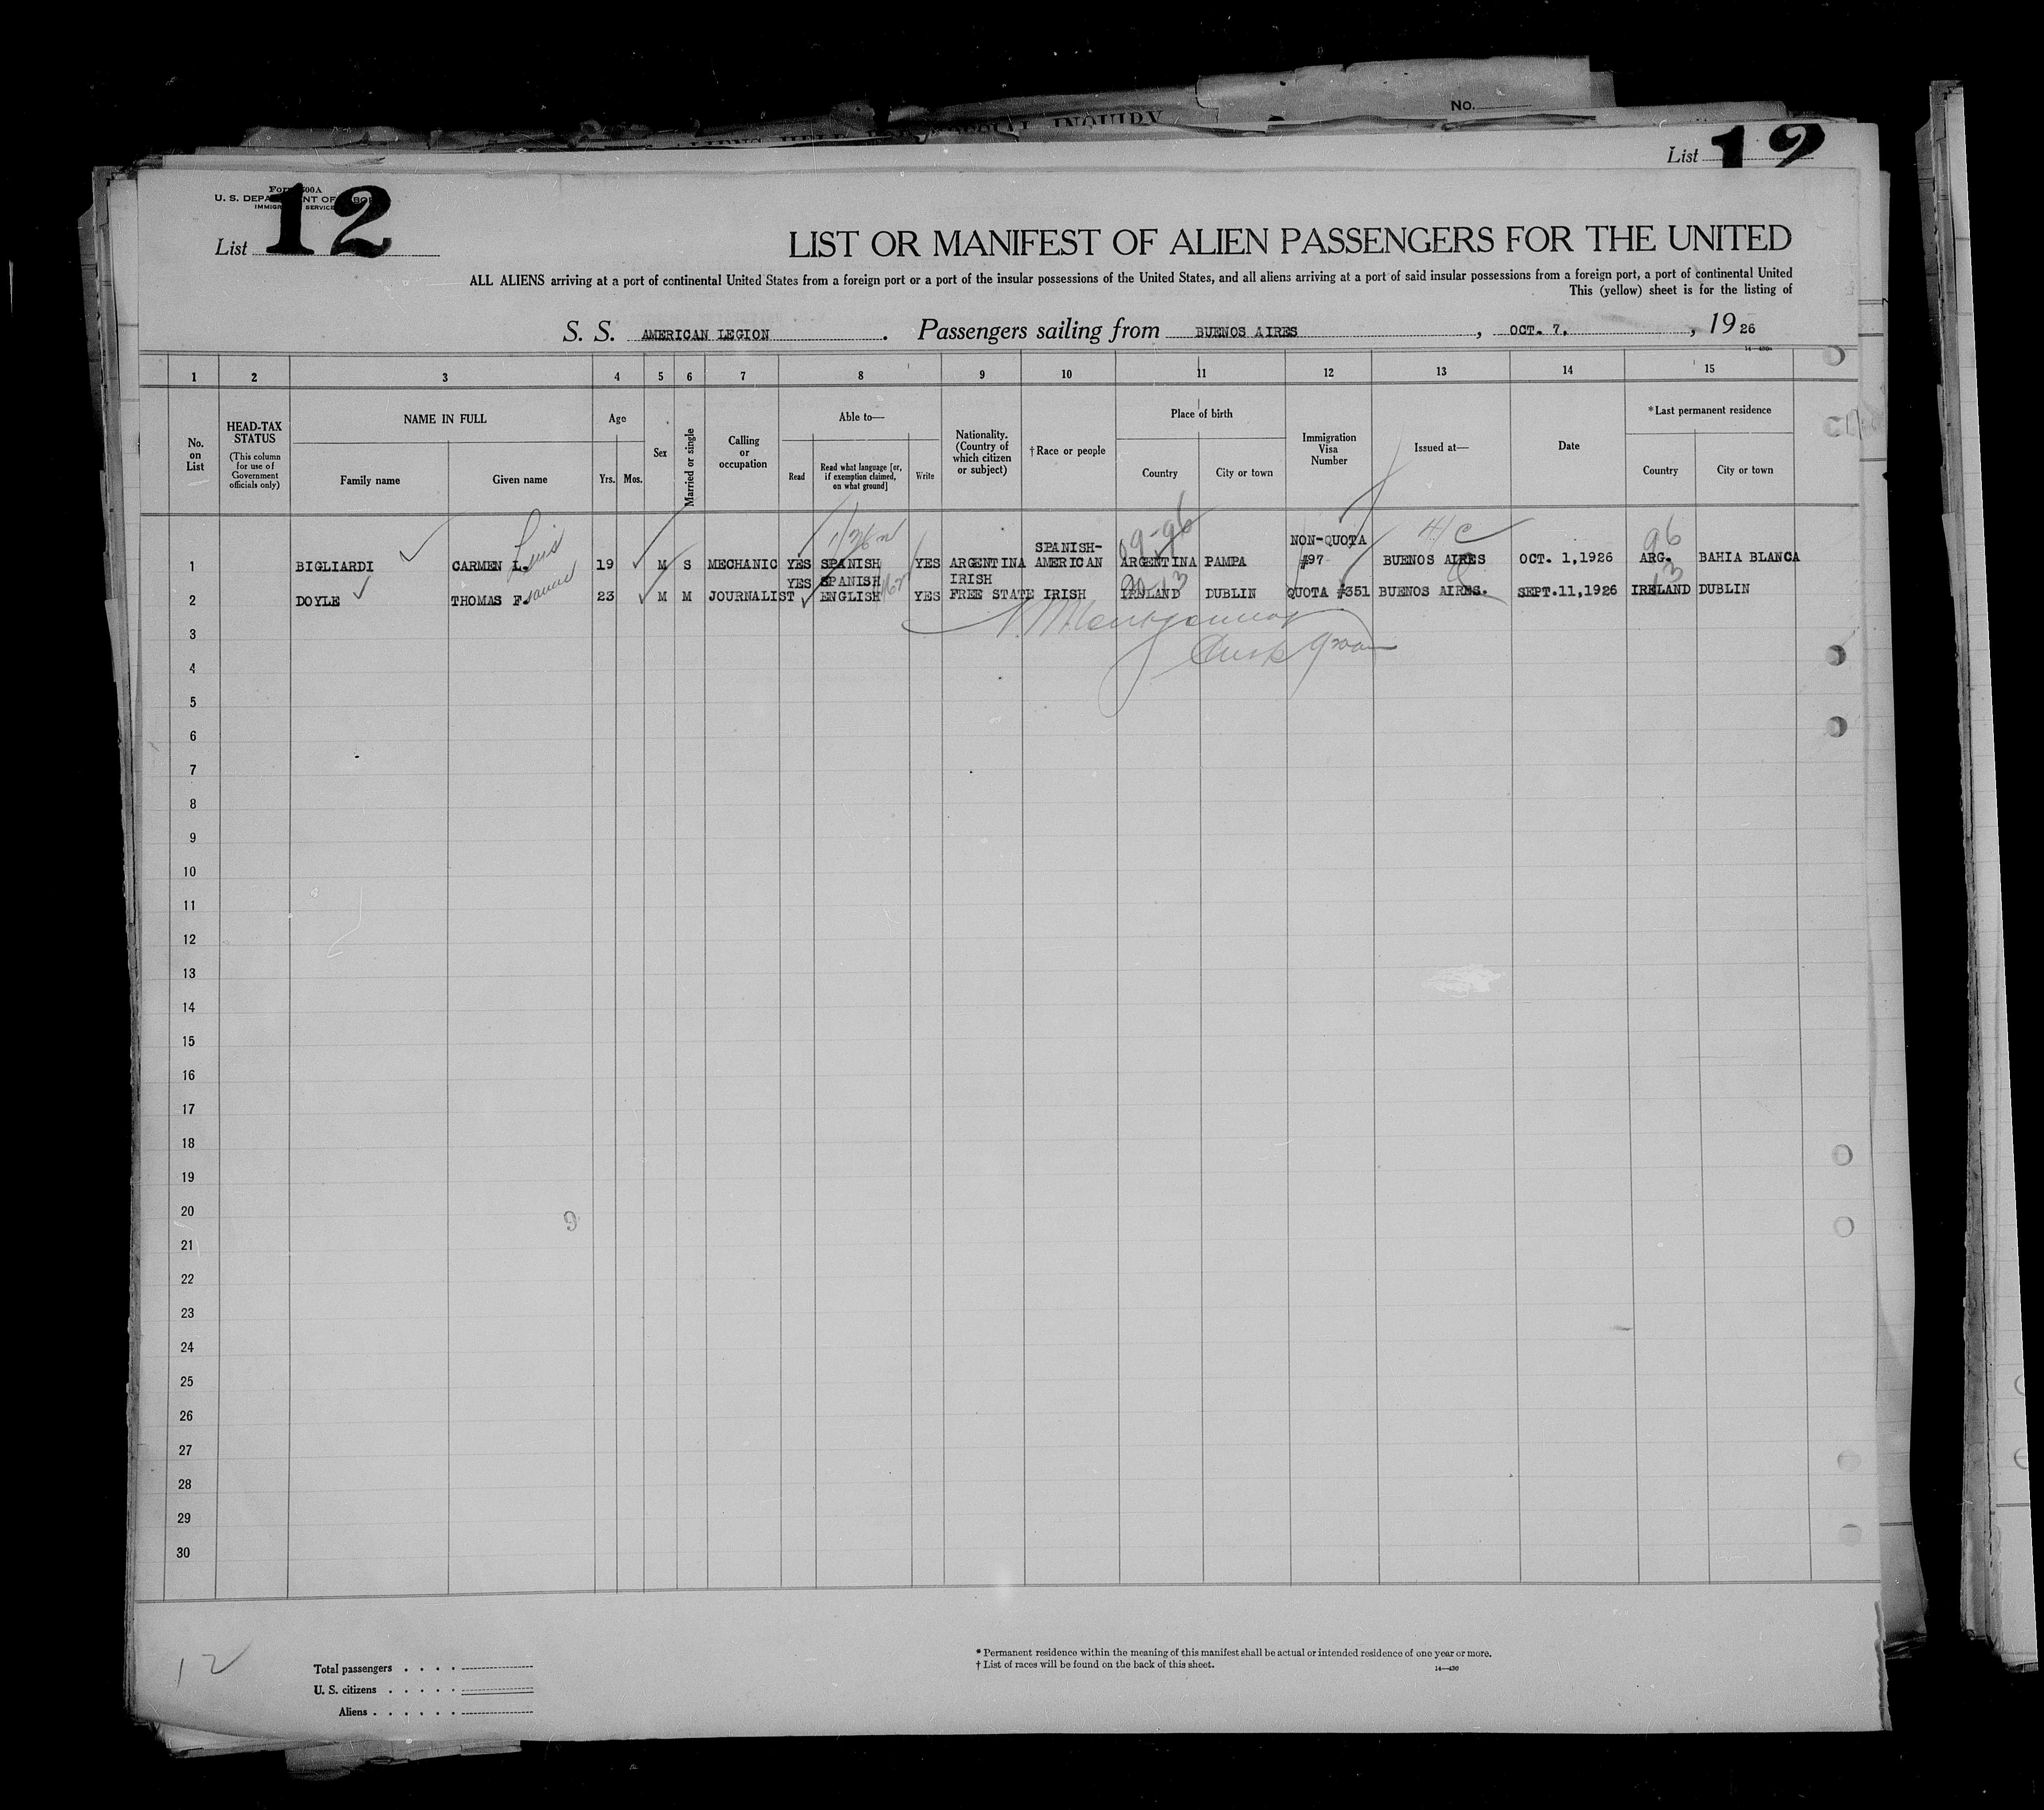 No.
ALIENS HELD INQUIRY
List 12
Form 500A
U. S. DEPARTMENT OF LABOR
IMMIGRATION SERVICE
List 12
LIST OR MANIFEST OF ALIEN PASSENGERS FOR THE UNITED
ALL ALIENS arriving at a port of continental United States from a foreign port or a port of the insular possessions of the United States, and all aliens arriving at a port of said insular possessions from a foreign port, a port of continental United
This (yellow) sheet is for the listing of
S. S. AMERICAN LEGION . Passengers sailing from BUENOS AIRES , OCT. 7, , 19 26
14—430
1 2 3 4 5 6 7 8 9 10 11 12 13 14 15
No. on List
HEAD-TAX STATUS
(This column for use of Government officials only)
NAME IN FULL
Family name Given name
Age
Yrs. Mos.
Sex
Married or single
Calling or occupation
Able to—
Read
Read what language [or, if exemption claimed, on what ground]
Write
Nationality. (Country of which citizen or subject)
† Race or people
Place of birth
Country City or town
Immigration Visa Number
Issued at—
Date
* Last permanent residence
Country City or town
Luis 09-96 4/c 96
1 BIGLIARDI CARMEN L. 19 M S MECHANIC YES SPANISH YES ARGENTINA SPANISH-AMERICAN ARGENTINA PAMPA NON-QUOTA #97 BUENOS AIRES OCT. 1,1926 ARG. BAHIA BLANCA
2 DOYLE THOMAS F. 23 M M JOURNALIST YES SPANISH ENGLISH YES IRISH FREE STATE IRISH IRELAND DUBLIN QUOTA #351 BUENOS AIRES. SEPT.11,1926 IRELAND DUBLIN
3
4
5
6
7
8
9
10
11
12
13
14
15
16
17
18
19
20
21
22
23
24
25
26
27
28
29
30
9
12
Total passengers . . . .
U. S. citizens . . . . .
Aliens . . . . . .
* Permanent residence within the meaning of this manifest shall be actual or intended residence of one year or more.
† List of races will be found on the back of this sheet.
14—430